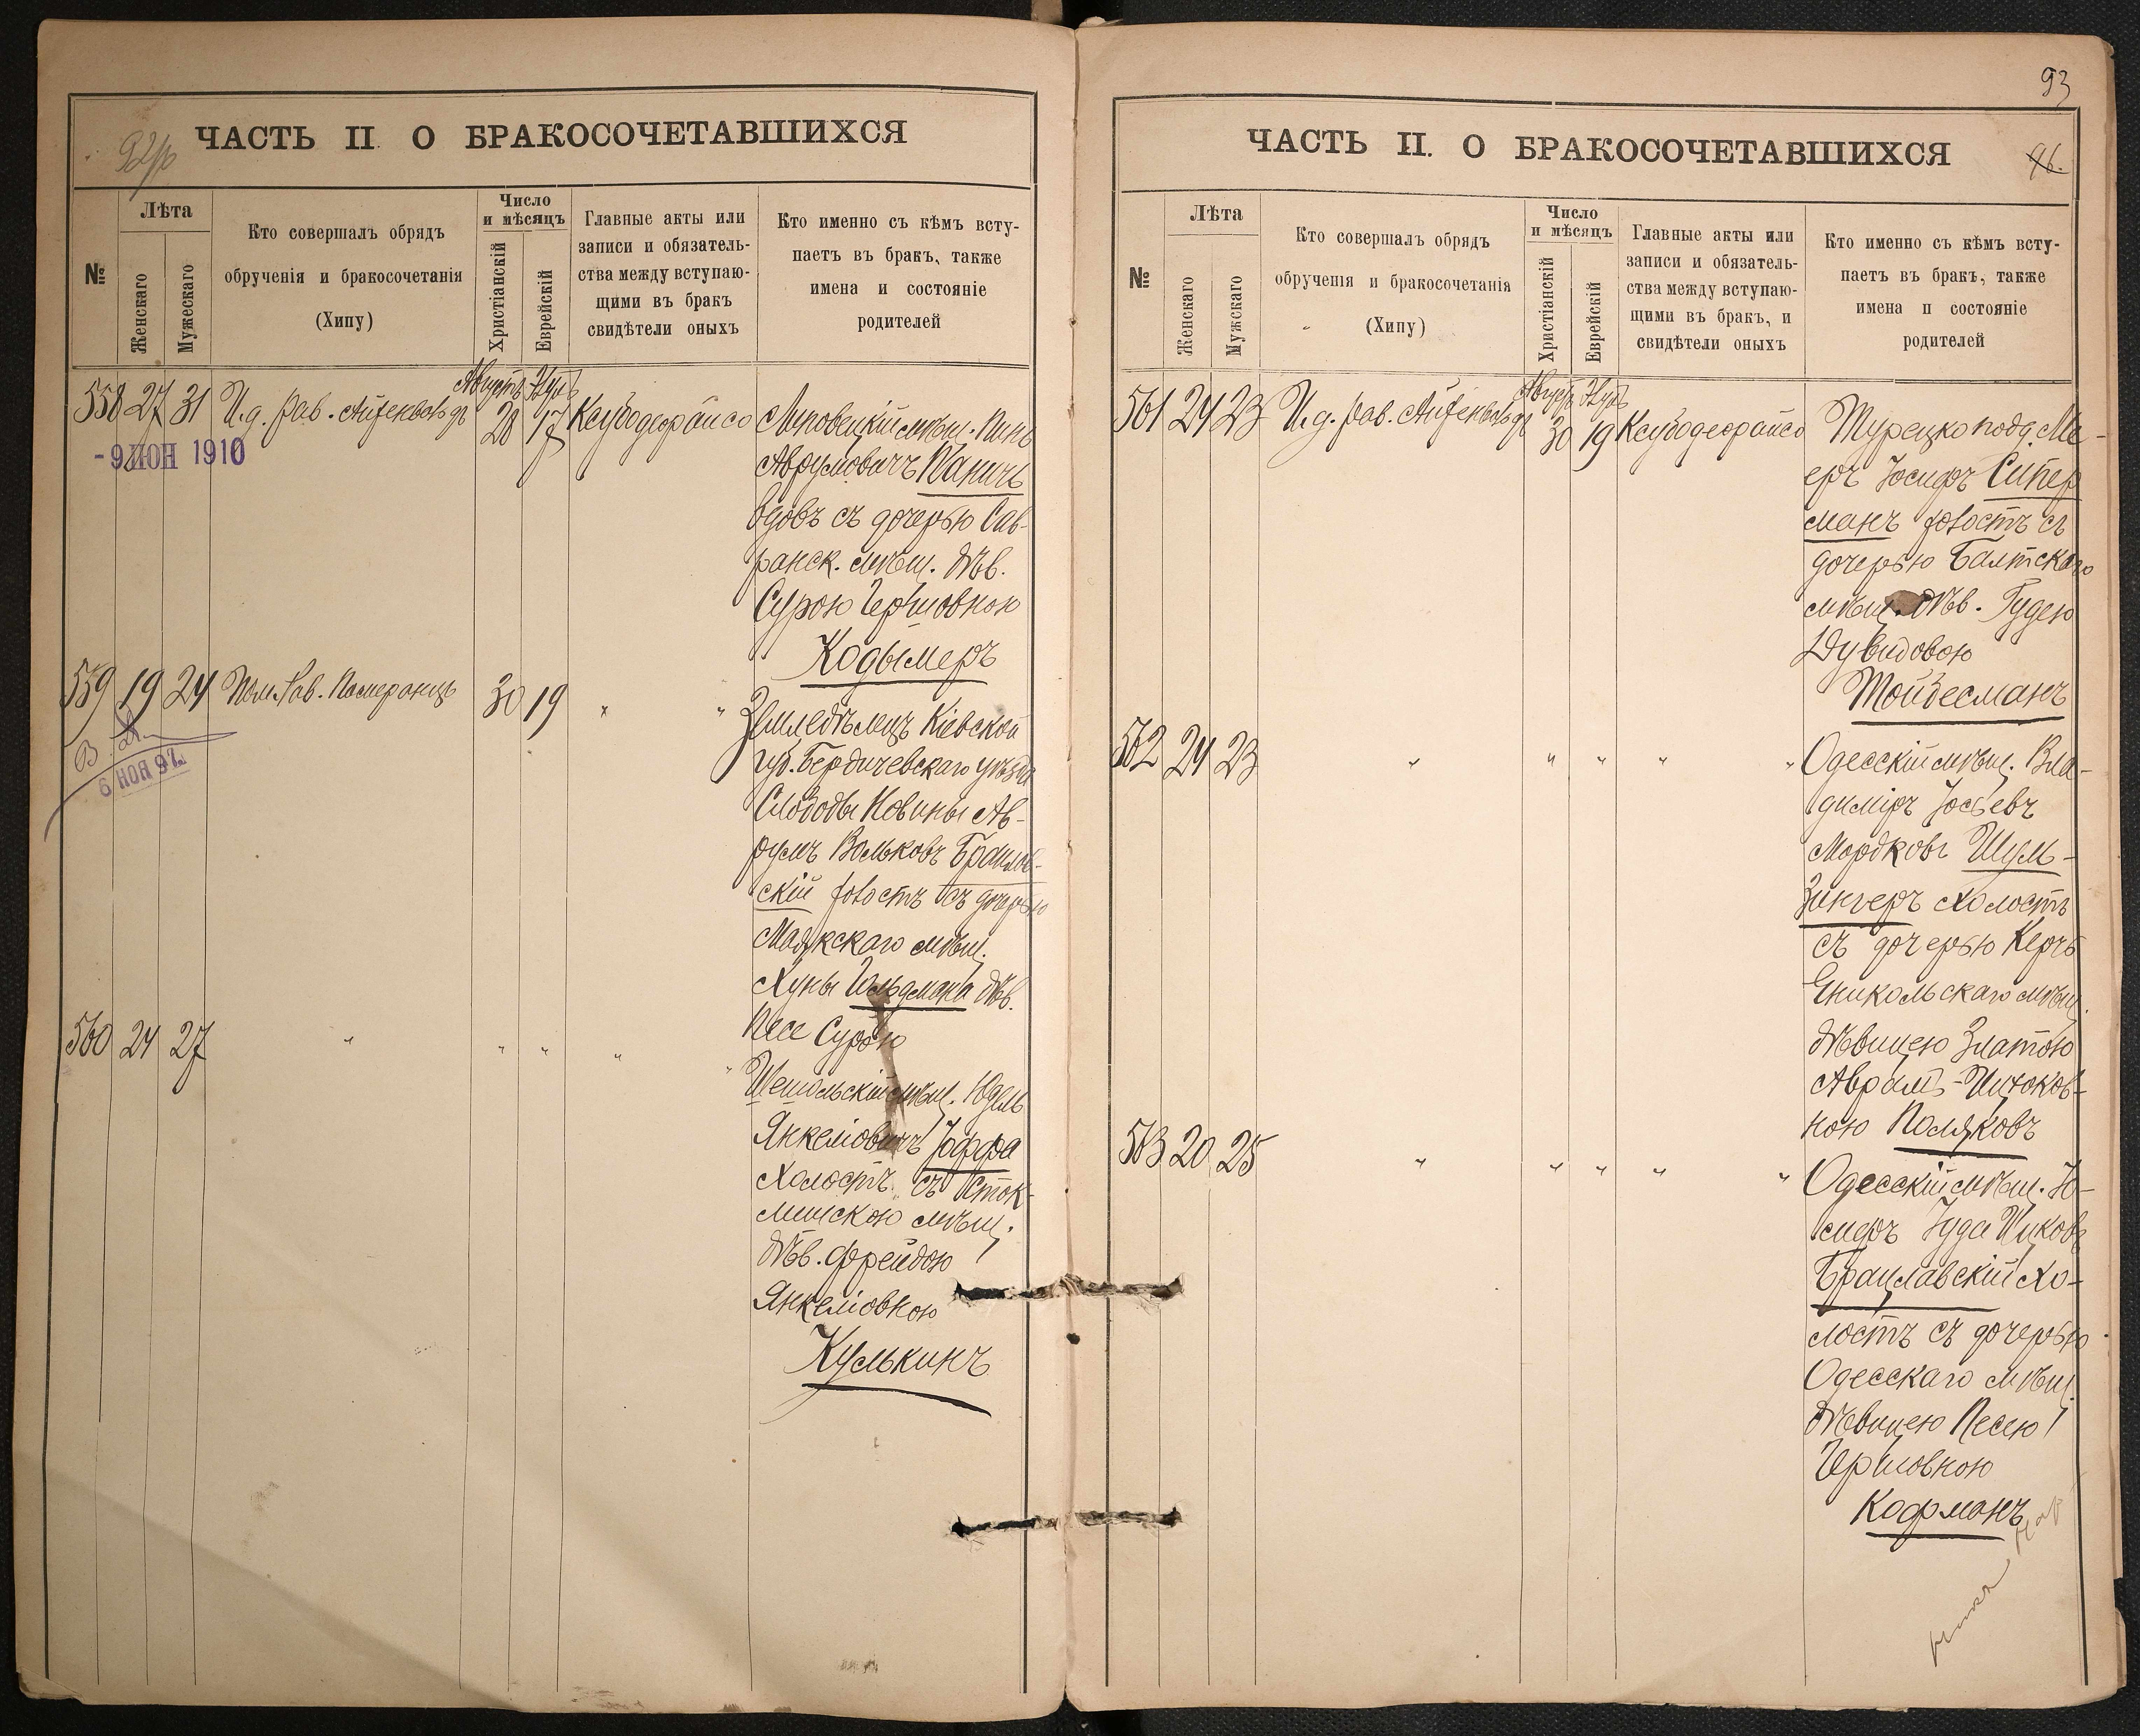 92/р
ЧАСТЬ II. О БРАКОСОЧЕТАВШИХСЯ
№
Лѣта
Женскаго
Мужескаго
Кто совершалъ обрядъ
обрученія и бракосочетанія
(Хипу)
Число
и мѣсяцъ
Христіанскій
Еврейскій
Главные акты или
записи и обязатель-
ства между вступаю-
щими въ бракъ
свидѣтели оныхъ
Кто именно съ кѣмъ всту-
паетъ въ бракъ, также
имена и состояніе
родителей
Августъ
558 27 31 И.д. рав. 28 17
- 9 ИЮН 1910
мѣщ. Пинь
Аврумовичъ
вдовъ съ дочерью Сав-
ранск. мѣщ. дѣв.
Сурою Гершовною
Кодымеръ
559 19 24 Пом. Рав. Померанцъ 30 19 " "
6 НОЯ 97
Земледѣлецъ Кіевской
губ. Бердичевскаго уѣзда
Слободы Новины Ав-
румъ Вольковъ Браилов-
скій холостъ съ дочерью
Маякскаго мѣщ.
Хуны Гольдмана дѣв.
Песе Сурою
560 24 27 " " " " "
мѣщ. Юдель
Янкеліовичъ Іоффа
Холостъ съ
мѣщ.
дѣв. Фрейдою
Янкеліовною
Кулькинъ
93
ЧАСТЬ II. О БРАКОСОЧЕТАВШИХСЯ
96.
№
Лѣта
Женскаго
Мужскаго
Кто совершалъ обрядъ
обрученія и бракосочетанія
(Хипу)
Число
и мѣсяцъ
Христіанскій
Еврейскій
Главные акты или
записи и обязатель-
ства между вступаю-
щими въ бракъ, и
свидѣтели оныхъ
Кто именно съ кѣмъ всту-
паетъ въ бракъ, также
имена и состояніе
родителей
561 24 23 И.д. рав. 30 19
Турецко подд. Ме-
еръ Іосифъ Сипер
манъ холостъ съ
дочерью Балтскаго
мѣщ. дѣв. Гудею
Дувидовою
Тойбесманъ
562 24 23 " " " " "
Одесскій мѣщ. Вла-
диміръ Іосьевъ
Мордковъ Шуль-
Зингеръ холостъ
съ дочерью Керчь
Еникольскаго мѣщ.
дѣвицею Златою
Аврамъ-Ицков-
ною Поляковъ
563 20 25 " " " " "
Одесскій мѣщ. Іо-
сифъ Іуда Ицковъ
Брацлавскій хо-
лостъ съ дочерью
Одесскаго мѣщ.
дѣвицею Песею
Гершовною
Кофманъ